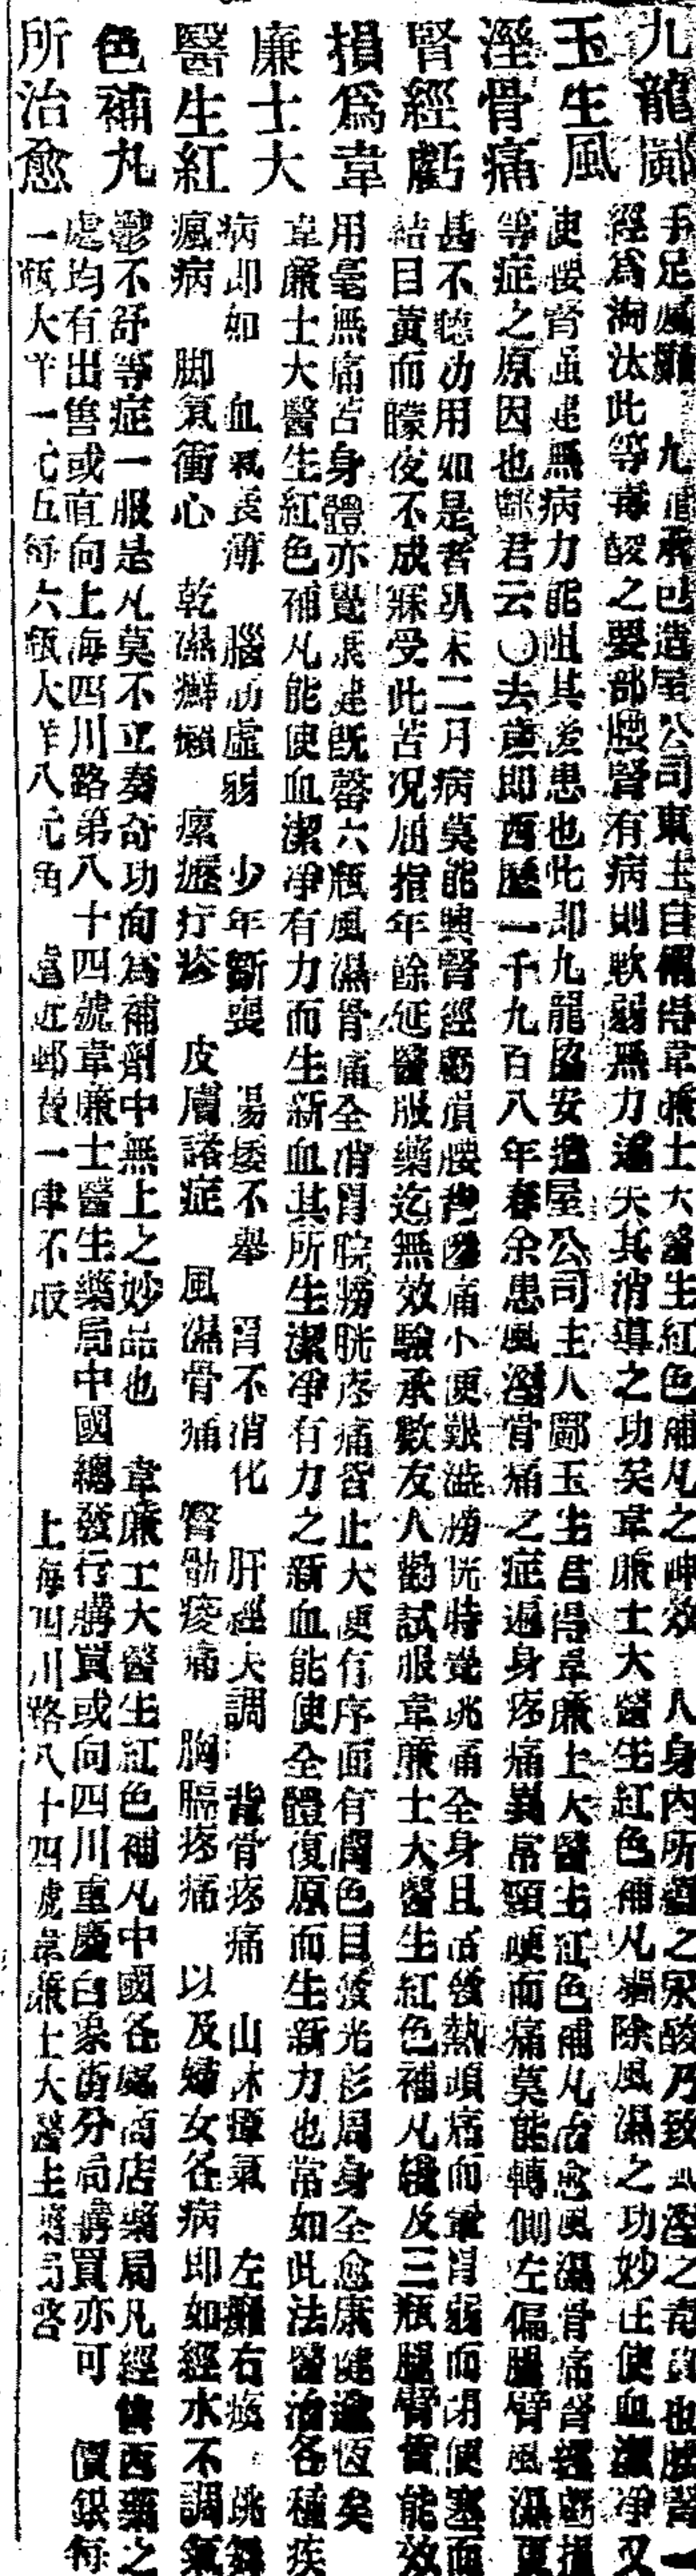 九龍鄺
玉生風
溼骨痛
腎經虧
損為韋
廉士大
醫生紅
色補丸
所治愈
手足風 九 造屋公司東主自 得韋廉士大醫生紅色補丸之神效 人身內所 之尿酸乃致 溼之毒質也腰腎
經為淘汰此等毒酸之要部腰腎有病則軟弱無力 失其消導之功矣韋廉士大醫生紅色補丸 除風濕之功妙在使血潔淨又
使腰腎强建無病力能阻其發患也此即九龍 安造屋公司主人鄺玉生君得韋廉士大醫生紅色補丸治愈風濕骨痛腎經虧損
等症之原因也鄺君云〇去歲即西歷一千九百八年春余患風溼骨痛之症遍身疼痛異常頸硬而痛莫能轉側左偏腿臂風濕更
甚不聽功用如是者 二月病莫能興腎經虧損腰 痛小便艱澁膀胱特覺 痛全身且 發熱頭痛而暈胃弱而閉便塞而
結目黃而矇夜不成寐受此苦况屈指年餘延醫服藥迄無效驗承數友人勸試服韋廉士大醫生紅色補丸 及三瓶腿臂 能效
用毫無痛苦身體亦覺 建既罄六瓶風濕骨痛全消胃脘膀胱疼痛皆止大便有序面有潤色目發光彩周身全愈康健逾恆矣
韋廉士大醫生紅色補丸能使血潔淨有力而生新血其所生潔淨有力之新血能使全體復原而生新力也常如此法醫治各種疾
病即如 血氣 薄 腦 虛弱 少年斲喪 陽痿不舉 胃不消化 肝經失調 背骨疼痛 山沐瘴氣 左癱右瘓
瘋病 脚氣衝心 乾濕癬癩 瘰癧疔疹 皮膚諸症 風濕骨痛 腎 痠痛 胸膈疼痛 以及婦女各病即如經水不調氣
鬱不舒等症一服是丸莫不立奏奇功洵為補劑中無上之妙品也 韋廉士大醫生紅色補丸中國各處商店藥局凡經售西藥之
處均有出售或直向上海四川路第八十四號韋廉士醫生藥局中國總發行購買或向四川重慶白象街分局購買亦可 價銀每
一瓶大洋一元五每六瓶大洋八元 遠近郵費一律不取 上海四川路八十四號韋廉士大醫生藥局啓